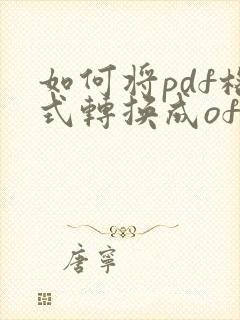 如何將pdf格
式轉換成of
唐寧